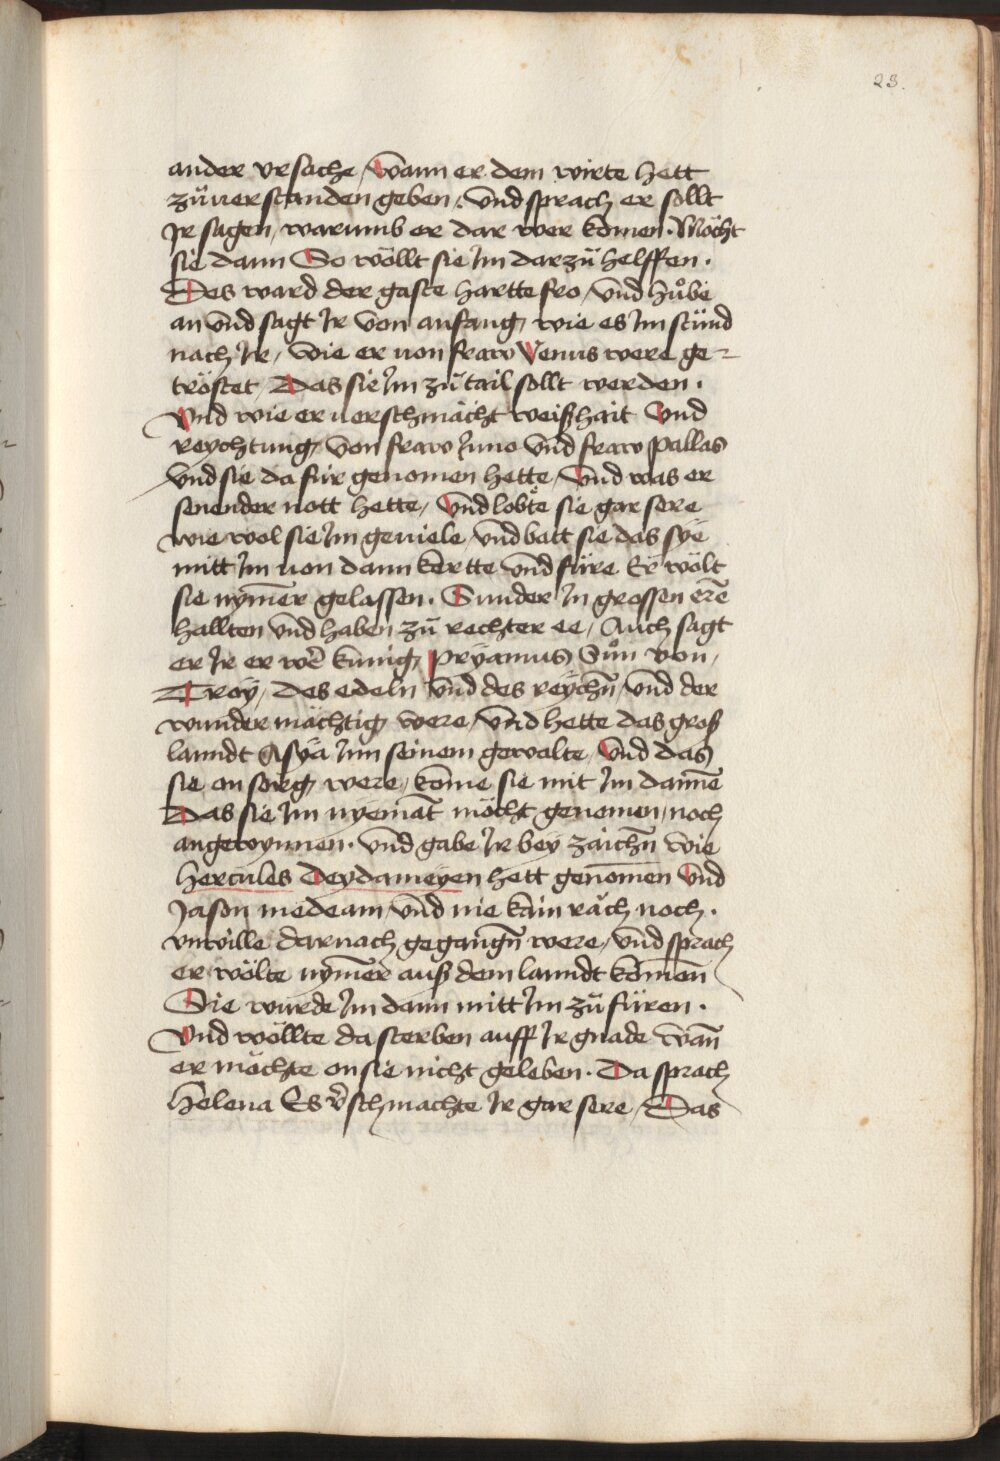 23.
ander vrsache / Wann er dem wirte hett
zůuerstanden geben / Vnd sprach er sollt
Jr sagen / warumb er dar wer komen · Möcht
sie dann So wöllt sie Jm darzů helffen ·
Des ward der gaste hartte fro / vnd hůbe
an vnd sagt Jr von anfang / wie es Jm stünd
nach Jr / wie er von fraw Venus were ge-
tröstet / Das sie Jm zů tail sollt werden ·
Vnd wie er verschmächt weißhait Vnd
reychtung / von fraw Juno vnd fraw pallas
vnd sie da für genomen hette / Vnd was er
senender nott hette / Vnd lobte sie gar sere
wie wol sie Jm geuiele / vnd batt sie das sye
mitt Jm von dann kertte vnd füre Er wölt
sie nym̄er gelassen · Sunder Jn grossen ere̅
hallten vnd haben zů rechter ee / Auch sagt
er Jr er we᷑ kunig / pryamus Sůn von /
Troy / des edeln Vnd des reychn̄ / vnd der
wunder mächtig were / vnd hette das groß
lanndt Asya Jnn seinem gewalte / Vnd das
sie on sorg were / kōme sie mit Jm danne̅
Das sie Jm nyemāt möcht genemen / noch
angewynnen · vnd gabe Jr bey zaichn̄ wie
hercules Deydameyen hett genōmen Vnd
Jason medeam / vnd nie kain räch noch ·
vnwille darnach gegangn̄ were / vnd sprach
er wölte nym̄er auß dem lanndt kōmen
Sie wurde Jm dann mitt Jm zů füren ·
Vnd wöllte da sterben auff Jr gnade wan̄
er möchte on sie nicht geleben · Da sprach
Helena Es v᷑schmachte Jr gar sere / Das